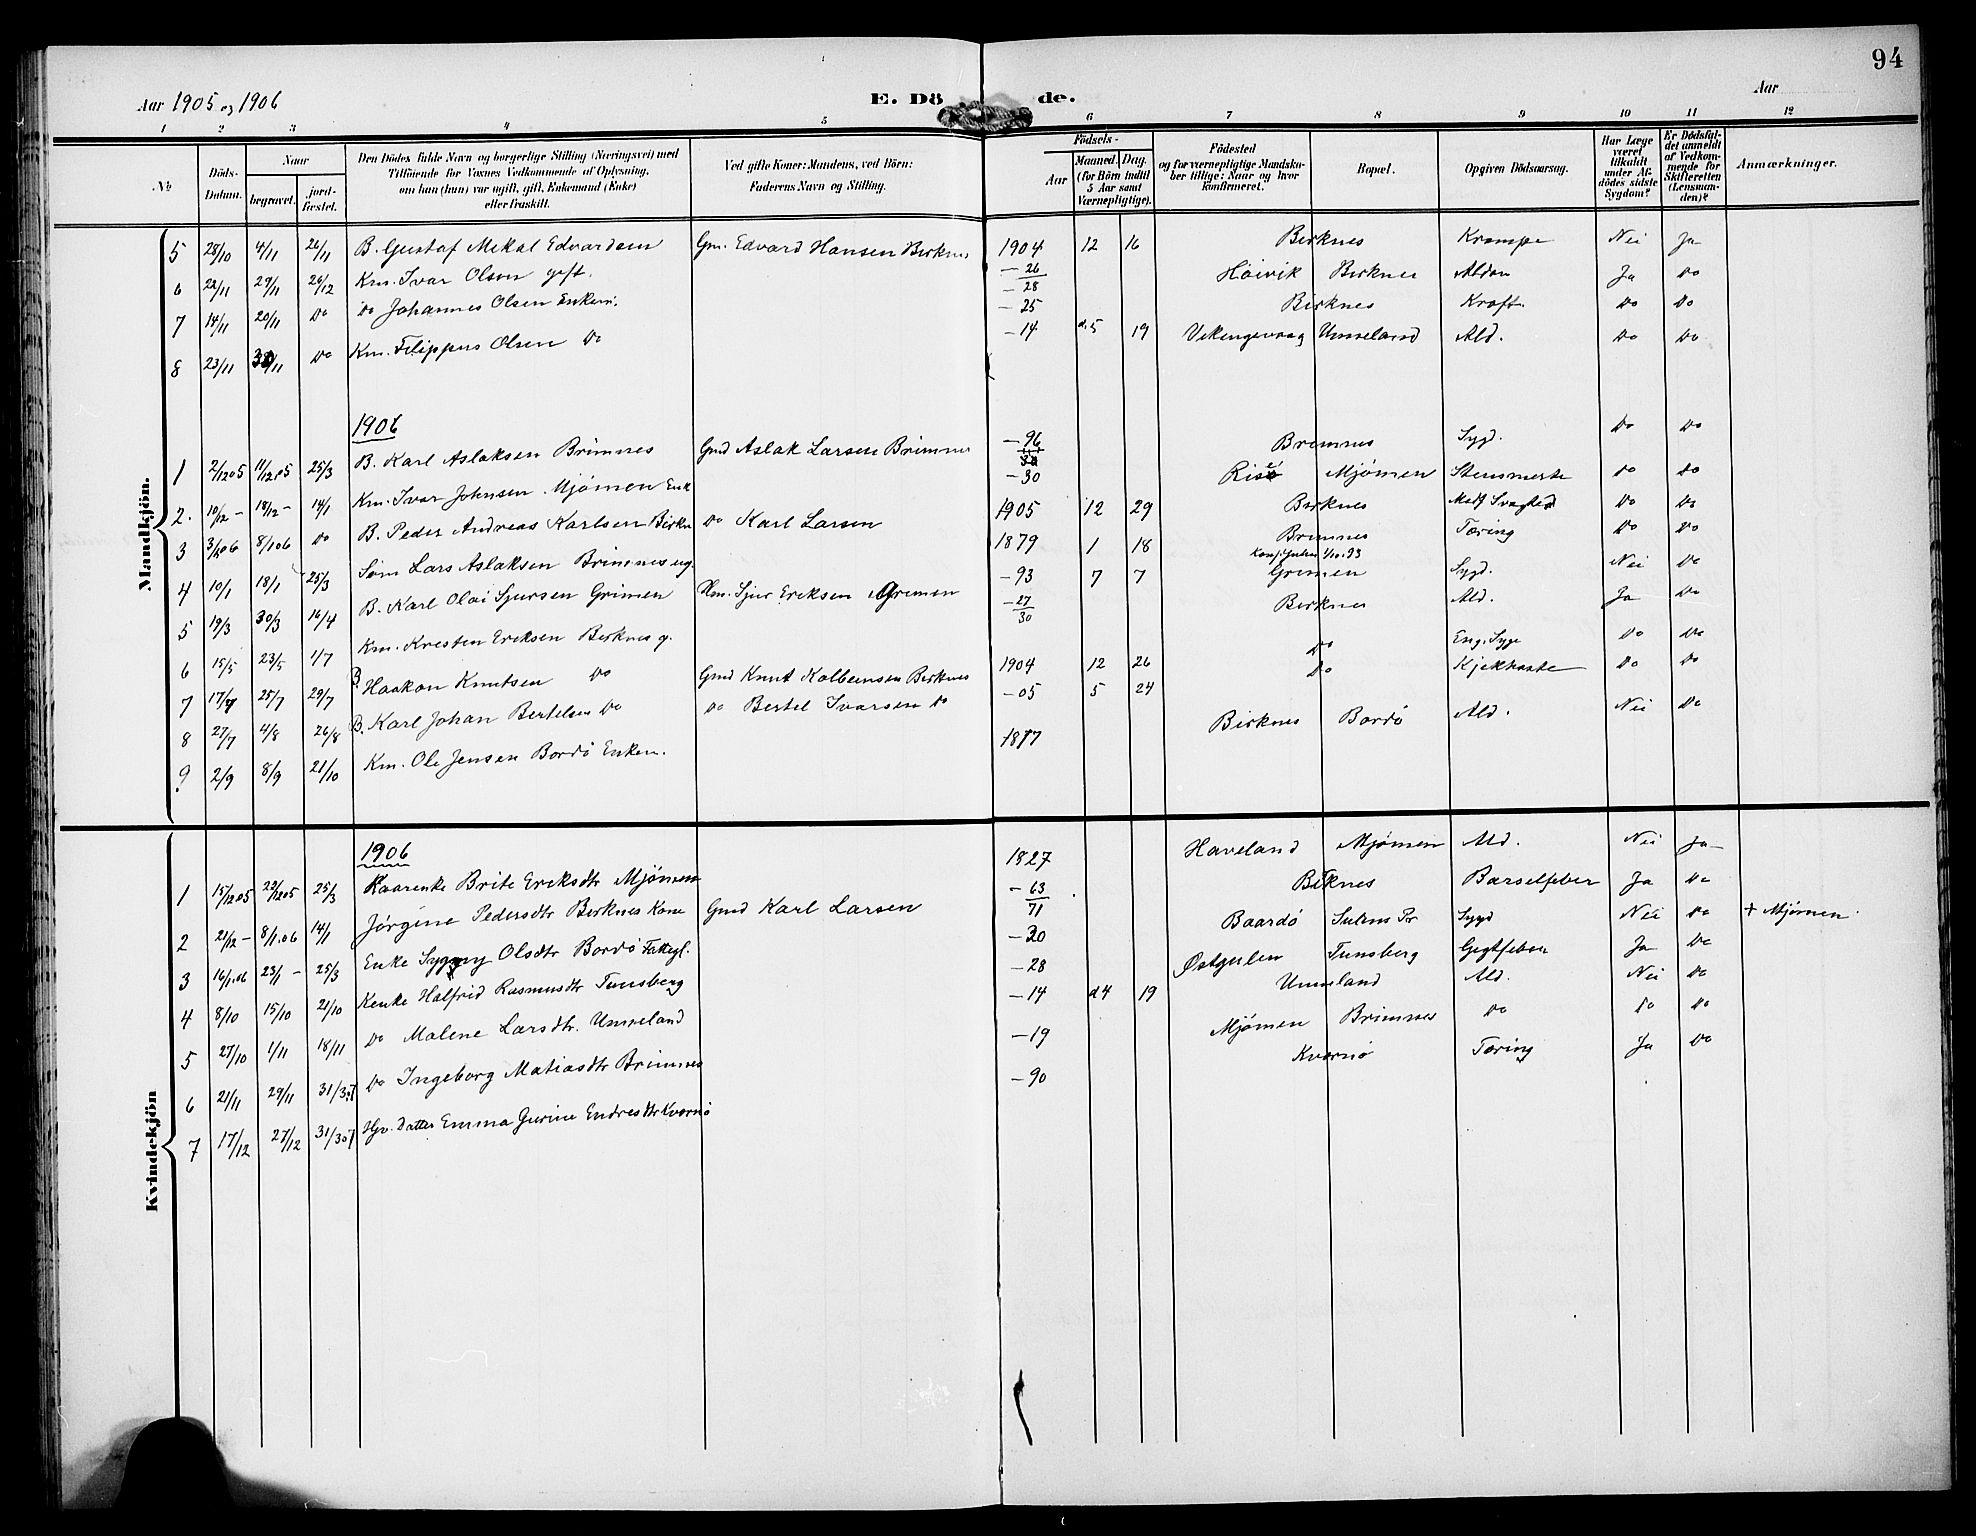 94
Aar 1905 og 1906
E. Dö de.
Aar
1 2 3 4 5 6 7 8 9 10 11 12
No
Döds-Datum.
Naar
begravet.
jord-fæstet.
Den Dödes fulde Navn og borgerlige Stilling (Næringsvei) med
Tilföiende for Voxnes Vedkommende af Oplysning,
om han (hun) var ugift, gift, Enkemand (Enke)
eller fraskilt.
Ved gifte Koner: Mandens, ved Börn:
Faderens Navn og Stilling.
Födsels-
Aar
Maaned. Dag.
(for Börn indtil
5 Aar samt
Værnepligtige).
Födested
og for værnepligtige Mandska-
ber tillige: Naar og hvor
konfirmeret.
Bopæl.
Opgiven Dödsaarsag.
Har Læge
været
tilkaldt
under Af-
dödes sidste
Sygdom?
Er Dödsfal-
det anmeldt
af Vedkom-
mende for
Skifteretten
(Lensman-
den)?
Anmærkninger.
Mandkjön.
5 28/10 4/11 26/11 B. Gustaf Mikal Edvardsen Gm. Edvard Hansen Birknes 1904 12 16 Birknes Krampe Nei Ja
6 22/11 29/11 26/12 Km. Ivar Olsen gift. – 26/28 Höivik Birknes Aldon Ja Do
7 14/11 20/11 Do Do Johannes Olsen Enkem. – 25 Birknes Kræft. Do Do
8 23/11 30/11 Do Km. Filippus Olsen Do – 14 d. 5 19 Vikingevaag Unneland Ald. Do Do
1906
1 2/12 05 11/12.05 25/3 B. Karl Aslaksen Brimnes Gmd Aslak Larsen Brimnes – 96 Brimnes Syd. Do Do
2. 10/12 – 18/12 – 14/1 Km. Ivar Johnsen Mjömen Enk – 30 Risö Mjömen Stensmerte Do Do
3 3/1 06 8/1 06 Do B. Peder Andreas Karlsen Birkn Do Karl Larsen 1905 12 29 Birknes Medf Svaghed Do Do
4 10/1 18/1 25/3 Söm Lars Aslaksen Brimnes ug. 1879 1 18 Brimnes Tæring Do Do
Konf. Gulen 1/10.93
5 19/3 30/3 16/4 B. Karl Olai Sjursen Grimen Hm. Sjur Eriksen Grimen – 93 7 7 Grimen Sygd. Nei Do
6 15/5 23/5 1/7 Km. Kristen Eriksen Birknes g. – 27/30 Birknes Ald. Ja Do
7 17/7 25/7 29/7 B. Haakon Knutsen Do Gmd Knut Kolbeinsen Birknes 1904 12 26 Do Eng. Syge Do Do
8 27/7 4/8 26/8 B. Karl Johan Bertelsen Do Do Bertel Ivarsen Do – 05 5 24 Do Kjekhoste Do Do
9 2/9 8/9 21/10 Km. Ole Jensen Bordö Enkem. 1817 Birknes Bordö Ald. Nei Do
Kvindekjön
1906
1 15/12 05 23/12 05 25/3 Kaarenke Brite Eriksdtr Mjömen 1827 Haveland Mjömen Ald. Nei Ja
2 21/12 – 8/1.06 14/1 Jörgine Pedersdtr Birknes Kone Gmd Karl Larsen – 63/71 Birknes Barselfeber Ja Do
3 16/1.06 23/1 – 25/3 Enke Sygny Olsdtr Bordö Fattigl. – 20 Baardö Sulens Pr Sygd Nei Do + Mjömen.
4 8/10 15/10 21/10 Kenke Halfrid Rasmusdtr Tunsberg – 28 Østgulen Tunsberg Gigtfeber Ja Do
5 27/10 1/11 18/11 Do Malene Larsdtr. Unneland – 14 d 4 19 Unneland Ald. Nei Do
6 21/11 29/11 31/3 07 Do Ingeborg Matiasdtr Brimnes – 19 Mjömen Brimnes Do Do Do
7 17/12 27/12 31/3 07 Hjv. Datter Emma Gurine Endresdtr Kvernö – 90 Kvernö Tæring Ja Do